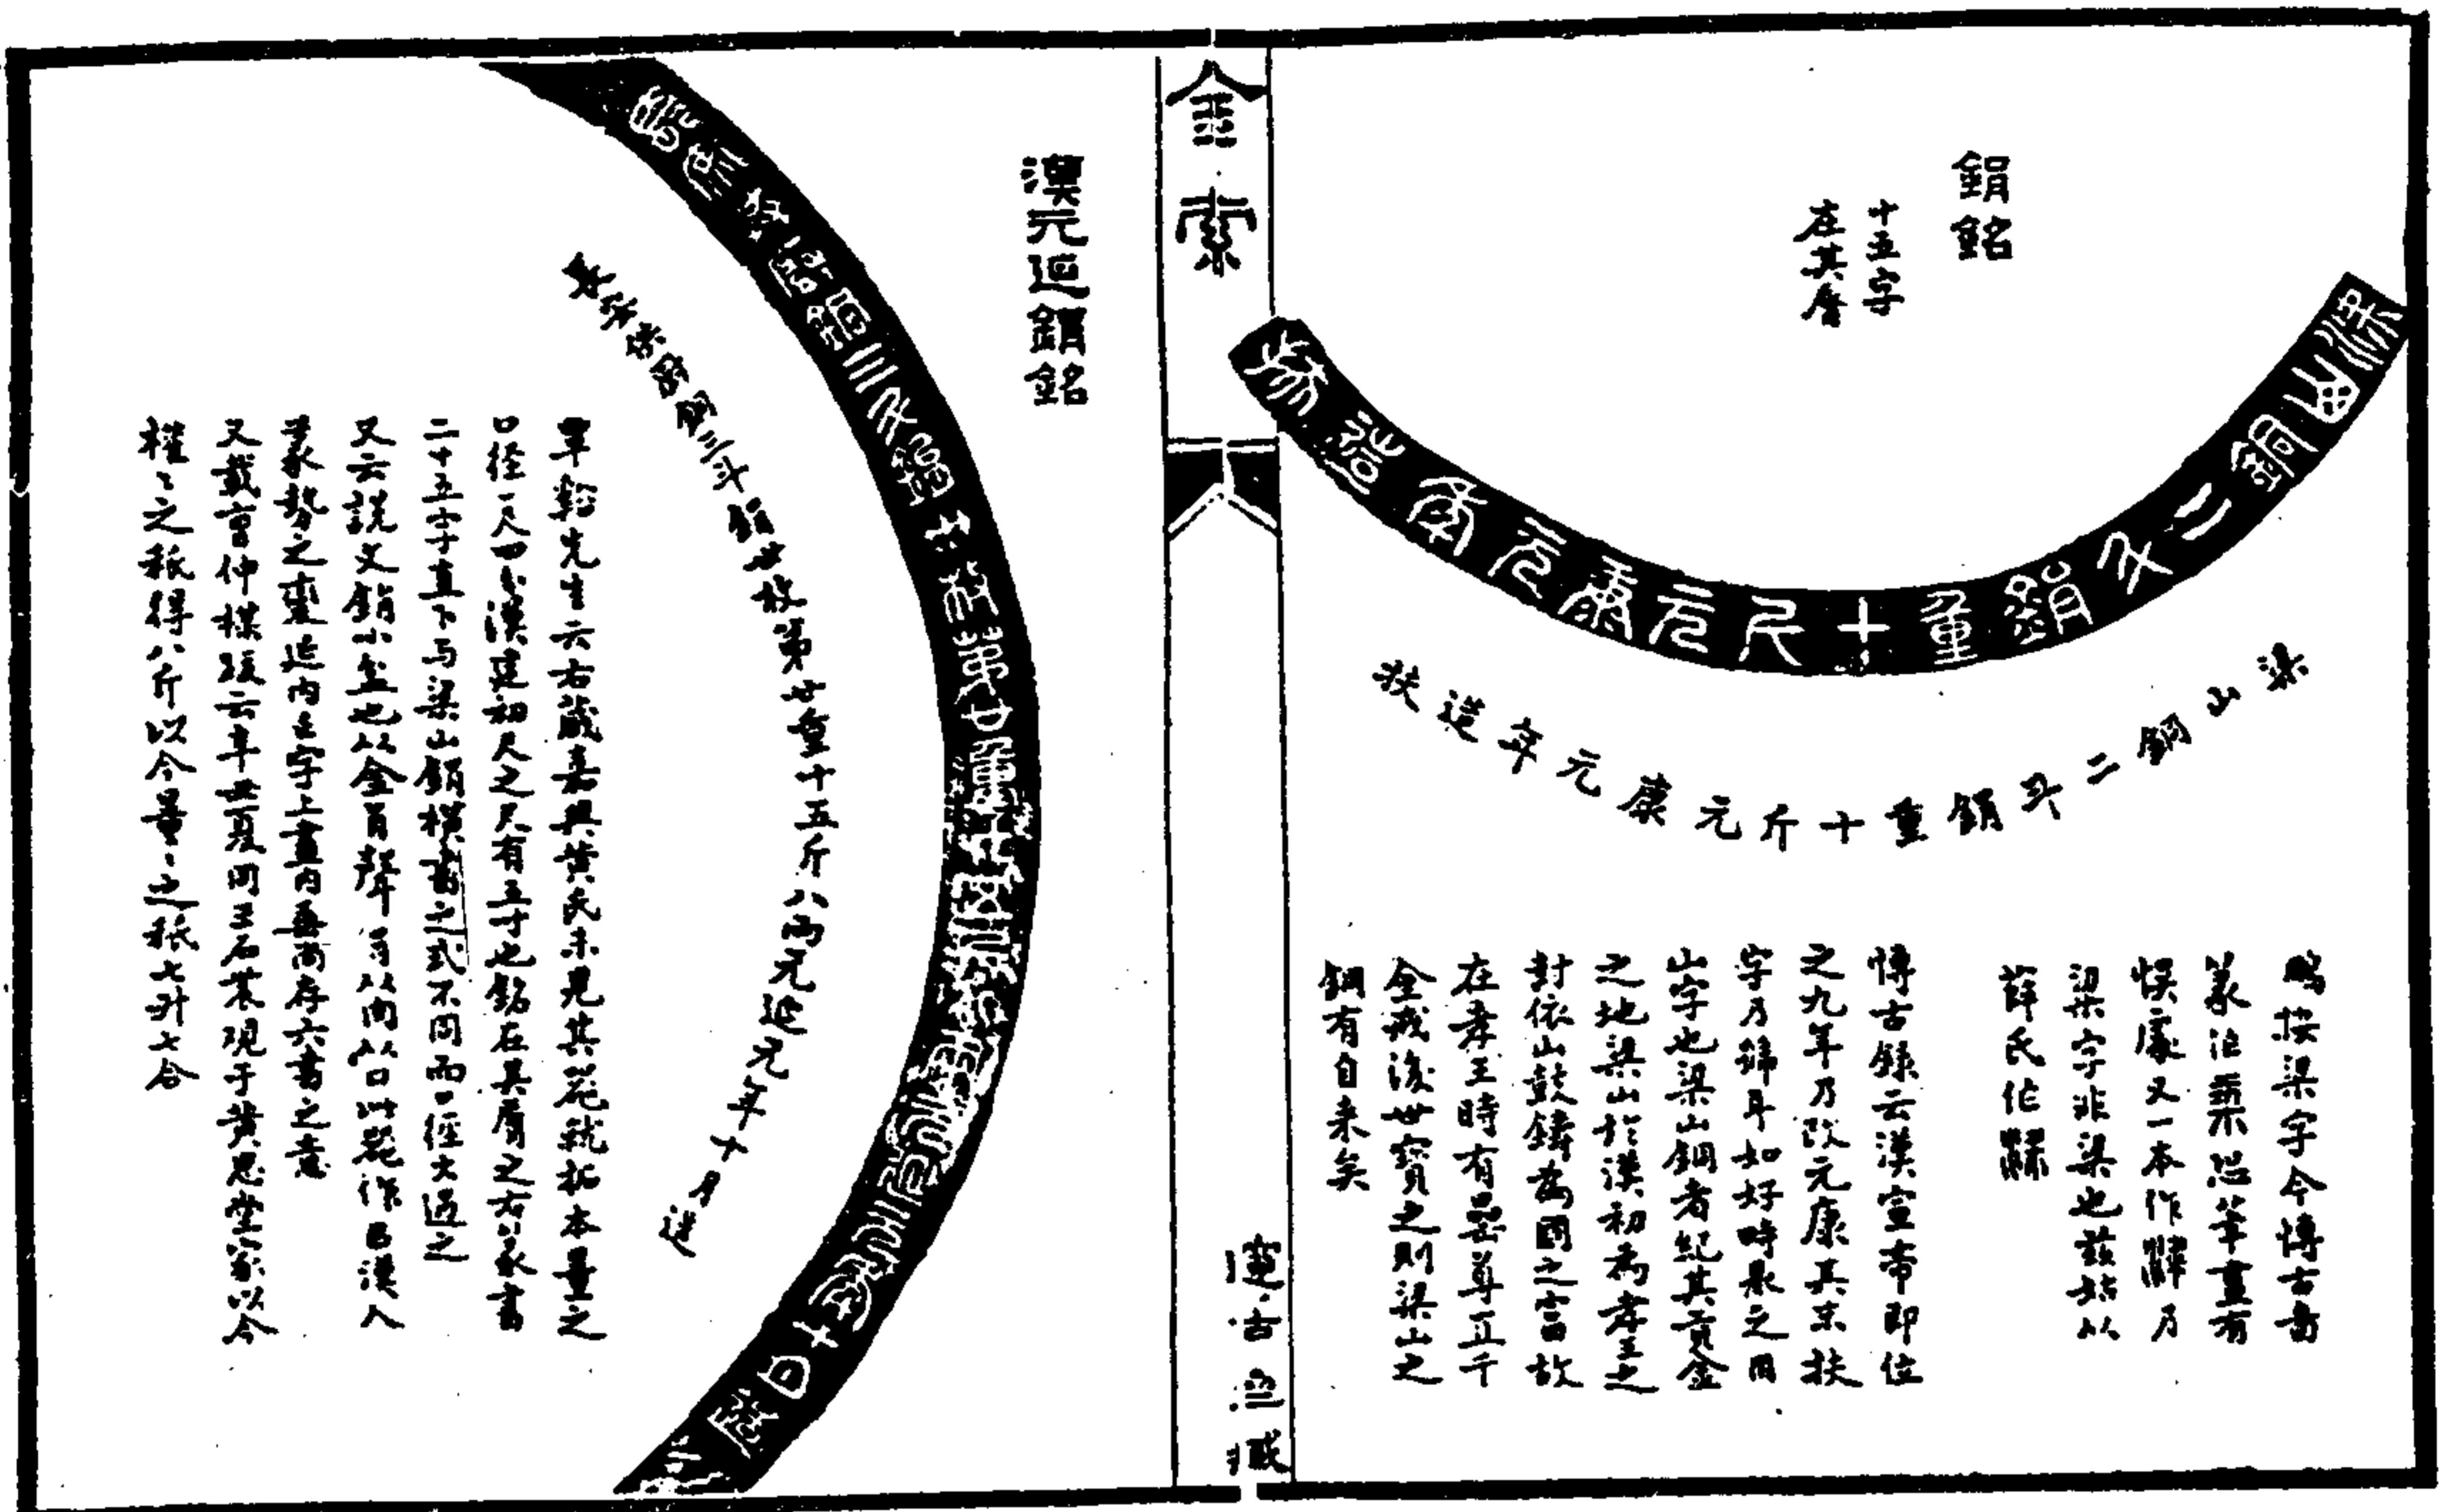 鋗銘
十五字
在其脣
梁山銅二斗鋗重十斤元康元年造扶
梁山銅二斗鋗重十斤元康元年造扶
鵬按梁字今博古書
篆作恐筆畫有
悞處又一本作乃
梁字非梁也茲姑从
薛氏作
博古錄云漢宣帝即位
之九年乃改元康其末扶
字乃號耳如好畤鼎之用
山字也梁山銅者紀其貢金
之地梁山於漢初為孝王之
封依山鼓鑄為國之富故
在孝王時有罍尊直千
金戒後世寶之則梁山之
銅有自来矣
金索
邃古藏
漢元延鋗銘
銅三斗鋗第廿重十五斤八兩元延元年十月造
覃谿先生云右藏嘉興黃氏未見其器就拓本量之
口徑一尺四寸漢建初尺之尺有五寸也銘在其脣之右篆書
二十五字直下与梁山鋗橫書之式不同而口徑大過之
又云説文鋗小盆也从金肙聲肙从肉从口此器作漢人
篆勢之變延内字上畫内垂尚存六書之意
又戴仲楳跋云夏同王石現于黃思堂家以今
權〻之秖得八斤以今量〻之秖七升七合